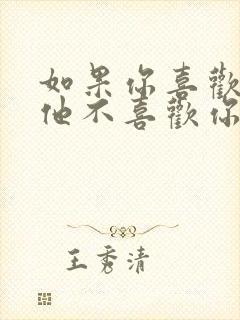 如果你喜歡
他不喜歡你
王秀清